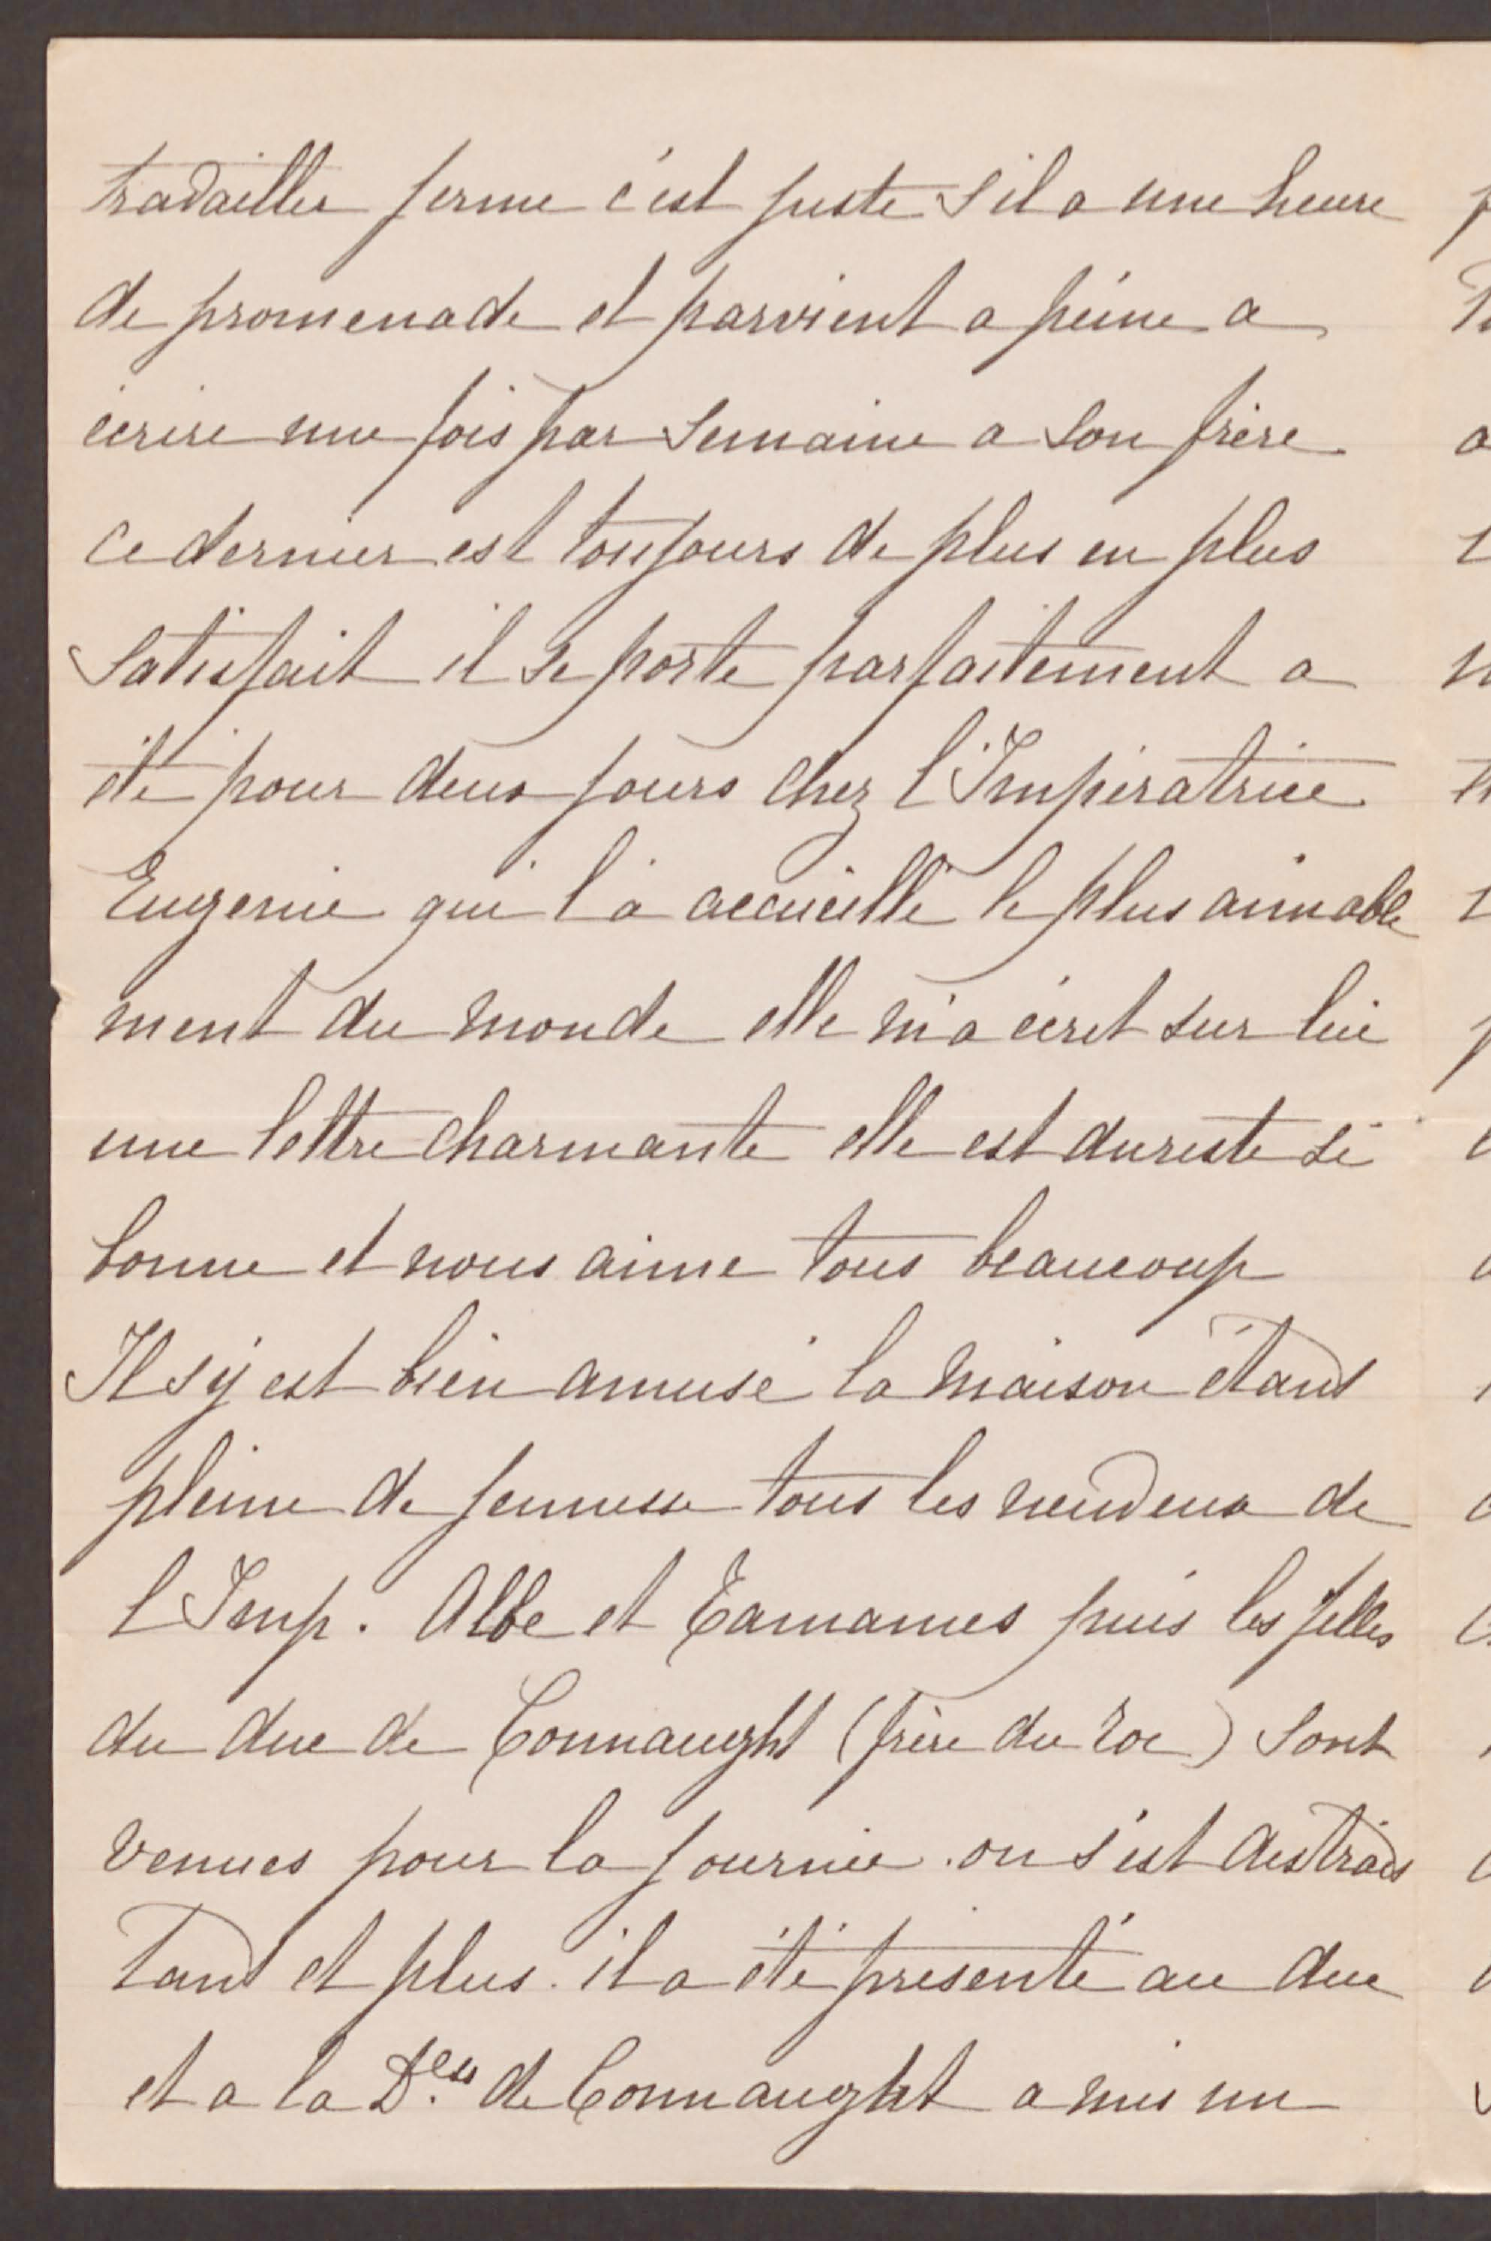 travailler ferme c'est juste s'il a une heure
de promenade et parvient a peine a
écrire une fois par semaine a son frère
ce dernier est toujours de plus en plus
satisfait il se porte parfaitement a
été pour deux jours chez l'Impératrice
Eugenie qui l'a accueilli le plus aimable
ment du monde elle m'a écrit sur lui
une lettre charmante elle est du reste si
bonne et nous aime tous beaucoup
Il s'y est bien amusé la maison étant
pleine de jeunesse tous les neveux de
l'Imp. Albe et Tamames puis les filles
du duc de Connaught (frère du roi) sont
venues pour la journée. on s'est distrait
tant et plus. il a été présenté au duc
et a la D.esse de Connaught a mis un